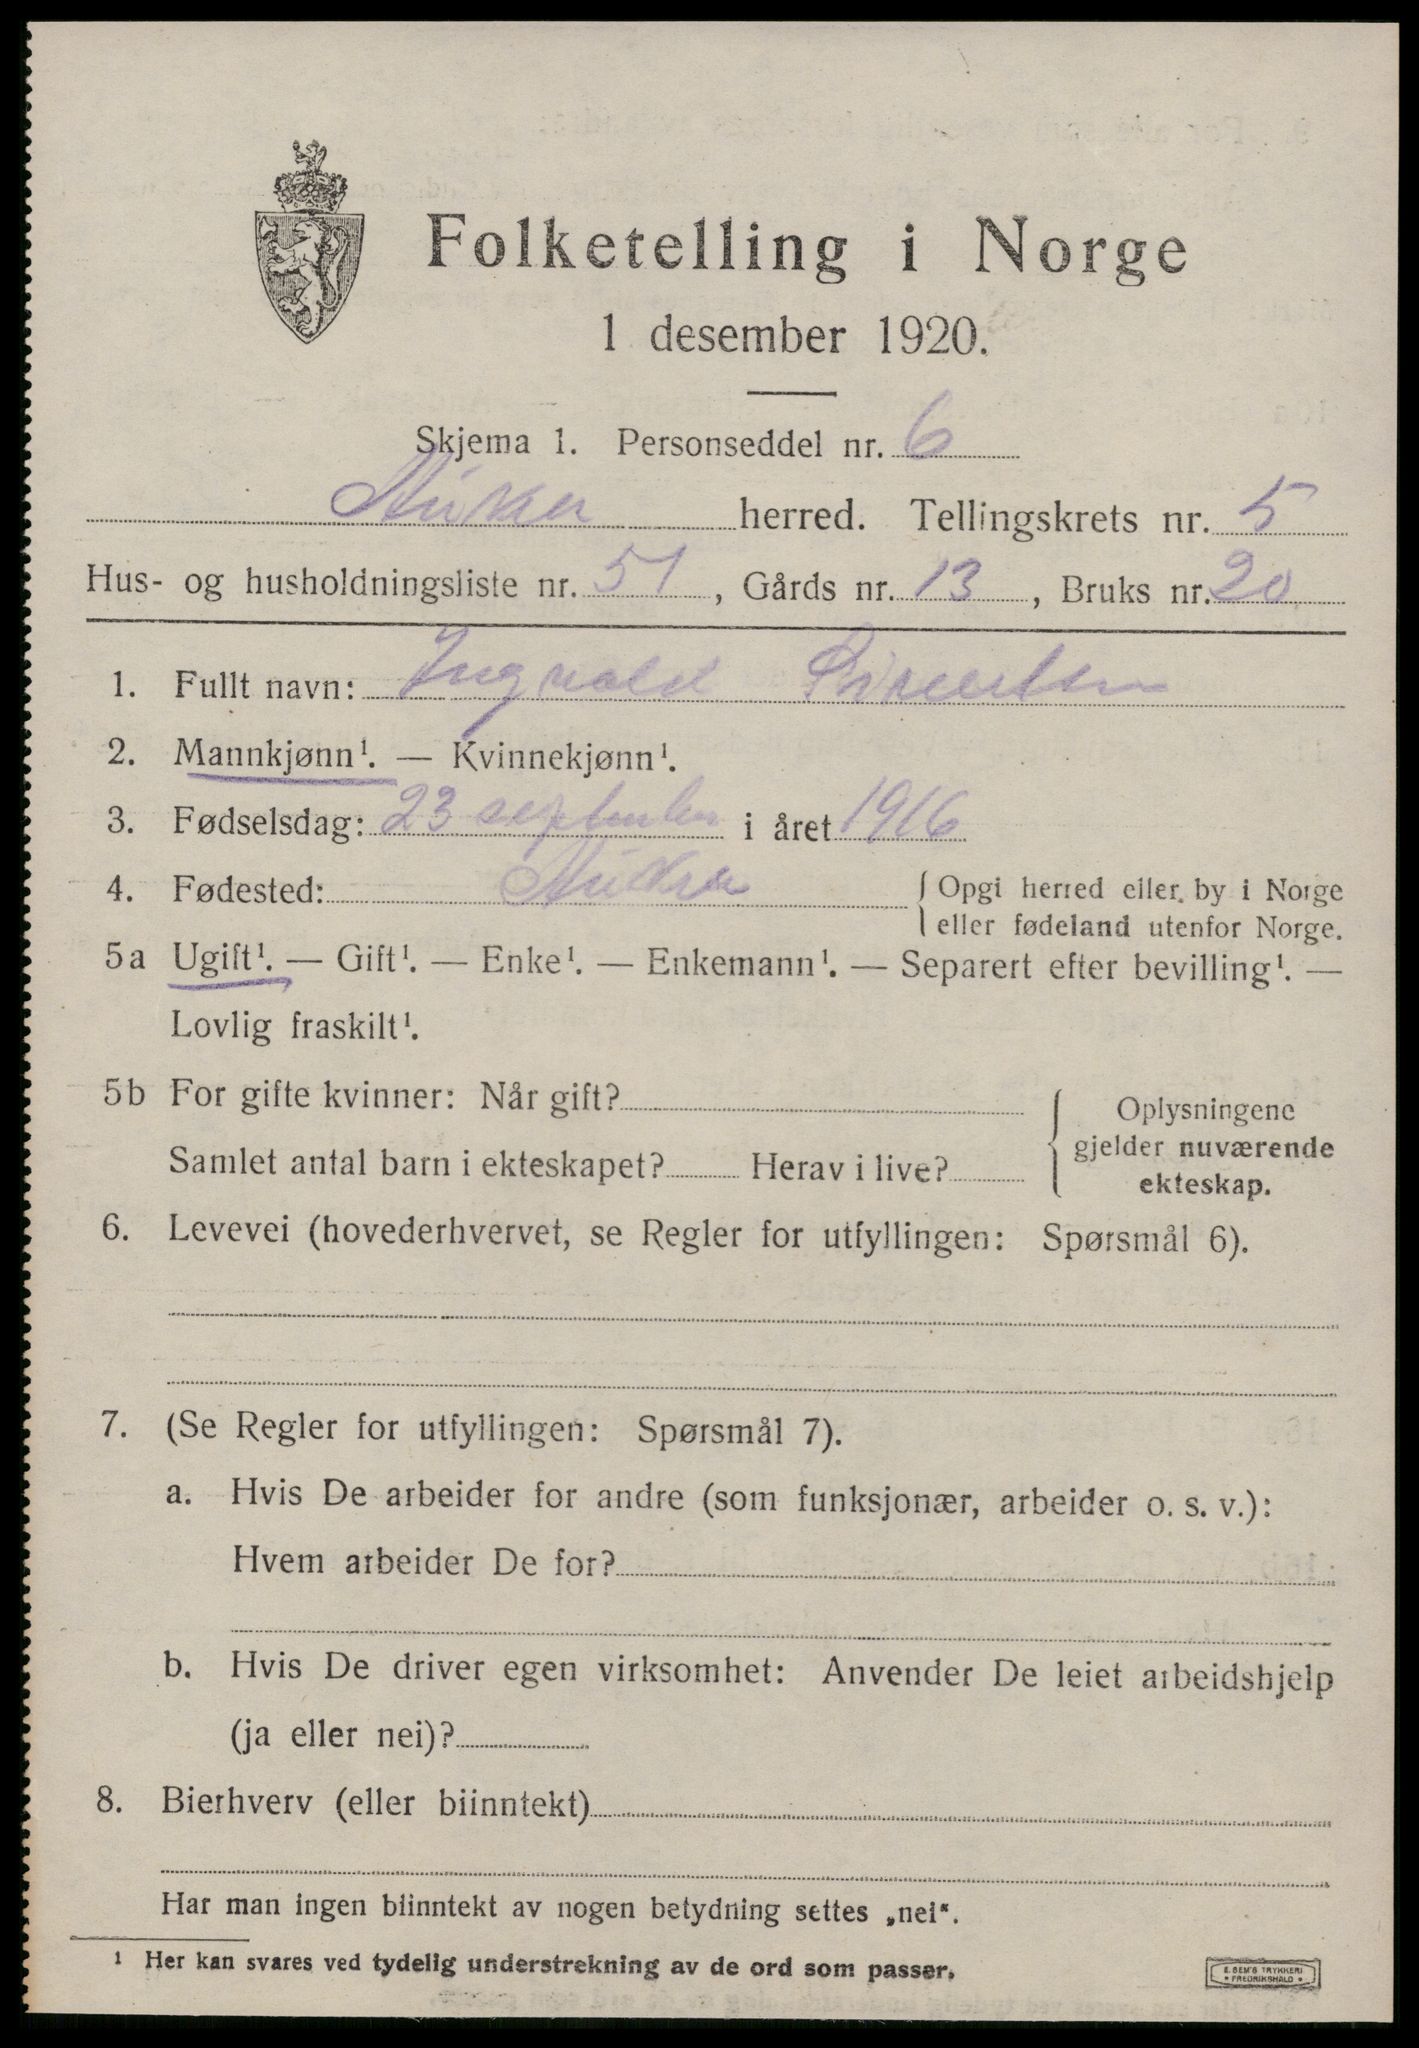 Folketelling i Norge
1 desember 1920.
Skjema 1. Personseddel nr. 6
Aukra herred. Tellingskrets nr. 5
Hus- og husholdningsliste nr. 51, Gårds nr. 13, Bruks nr. 20
1. Fullt navn: Ingvald
2. Mannkjønn¹. — Kvinnekjønn¹.
3. Fødselsdag: 23 september i året 1916
4. Fødested: Aukra { Opgi herred eller by i Norge
eller fødeland utenfor Norge.
5a Ugift¹. — Gift¹. — Enke¹. — Enkemann¹. — Separert efter bevilling¹. —
Lovlig fraskilt¹.
5b For gifte kvinner: Når gift?
Samlet antal barn i ekteskapet? Herav i live?
{ Oplysningene
gjelder nuværende
ekteskap.
6. Levevei (hovederhvervet, se Regler for utfyllingen: Spørsmål 6).
7. (Se Regler for utfyllingen: Spørsmål 7).
a. Hvis De arbeider for andre (som funksjonær, arbeider o. s. v.):
Hvem arbeider De for?
b. Hvis De driver egen virksomhet: Anvender De leiet arbeidshjelp
(ja eller nei)?
8. Bierhverv (eller biinntekt)
Har man ingen biinntekt av nogen betydning settes „nei“.
¹ Her kan svares ved tydelig understrekning av de ord som passer.
E. SEM'S TRYKKERI
FREDRIKSHALD